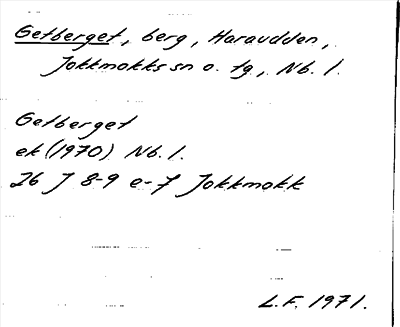 Getberget, berg, Haraudden,
Jokkmokks sn o. tg., Nb. l.
Getberget
ek (1970) Nb. l.
26 J 8-9 e-f Jokkmokk
L.F. 1971.